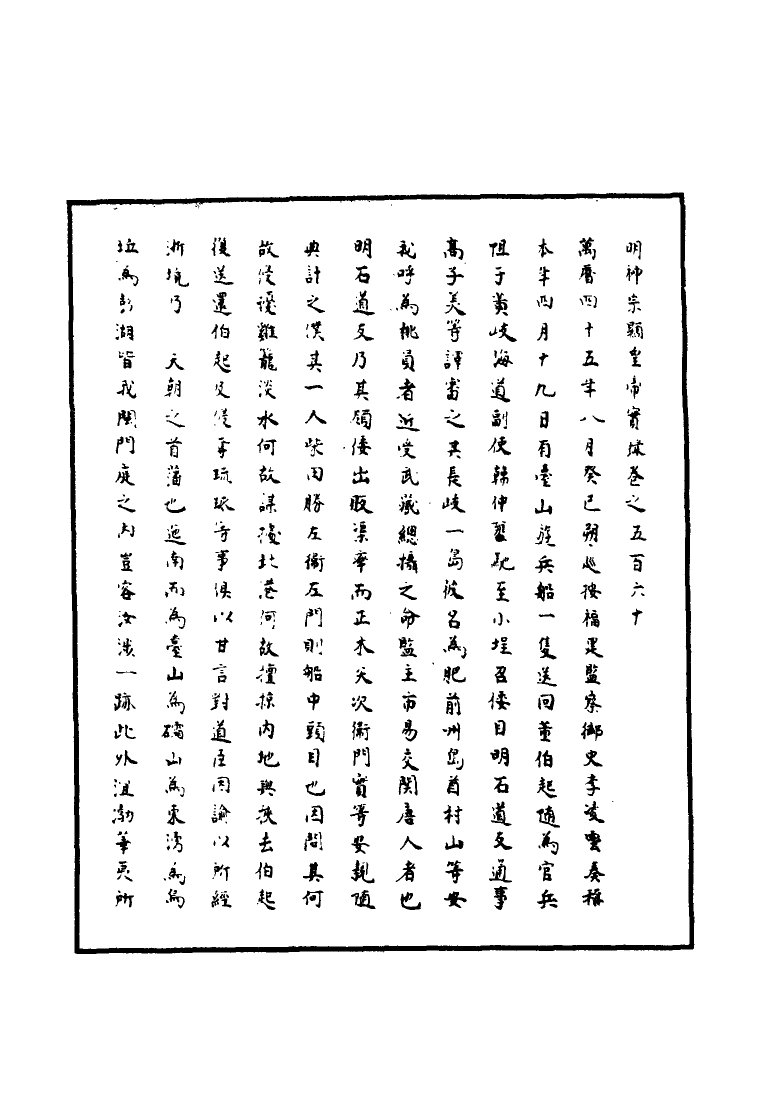 明神宗顯皇帝實錄卷之五百六十
萬曆四十五年八月癸巳朔巡按福建監察御史李凌雲奏稱
本年四月十九日有臺山遊兵船一隻送回董伯起隨為官兵
阻于黃岐海道副使韓仲雍馳至小埕召倭目明石道友通事
高子美等譯審之其長岐一島彼名為肥前州島酋村山等安
我呼為桃員者近受武藏總攝之命監主市易交関唐人者也
明石道友乃其領倭出販渠率而正木矢次衛門實等安親隨
典計之僕其一人柴田勝左衛左門則船中頭目也因問其何
故侵擾雞籠淡水何故謀擾北港何故擅掠內地與挾去伯起
復送還伯起及侵奪琉球等事俱以甘言對道臣因諭以所經
浙境乃 天朝之首藩也迤南而為臺山為礵山為東湧為烏
坵為彭湖皆我閩門庭之內豈容汝涉一跡此外溟渤華夷所